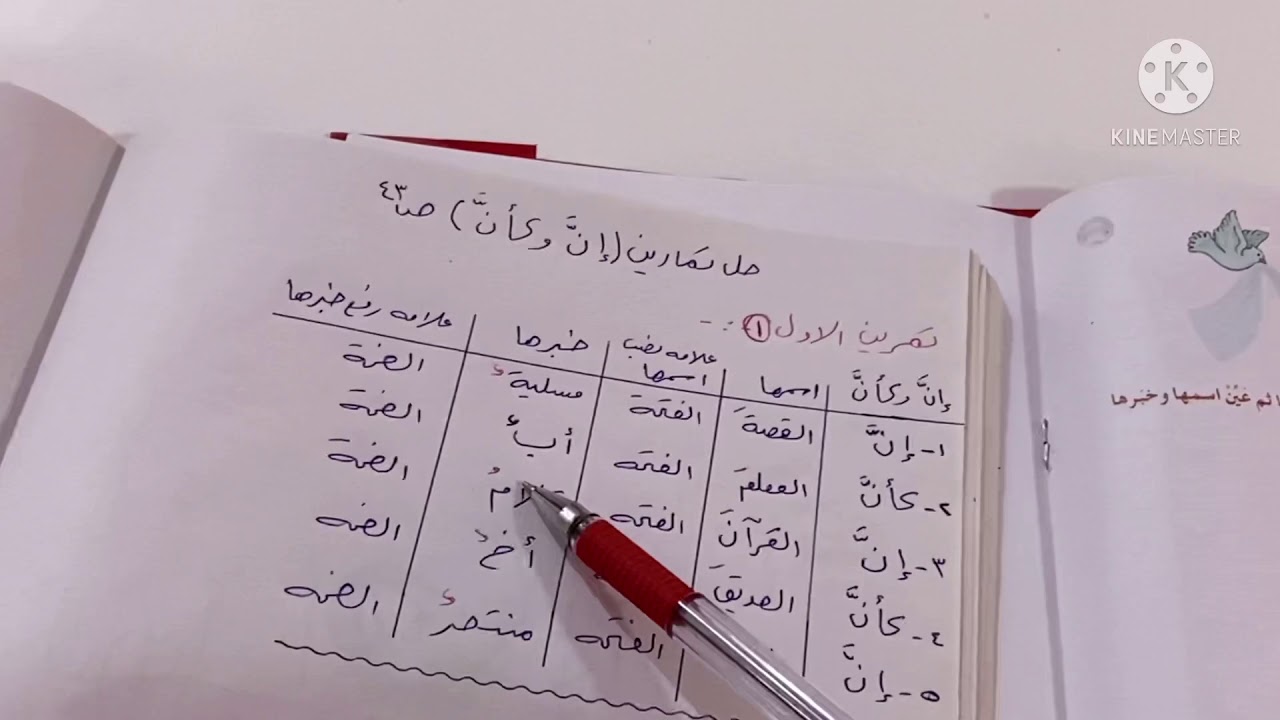 KINEMASTER
حل تمارين (إنَّ وكأنَّ) ص٤٣
تمرين الاول ①:-
إنَّ وكأنَّ اسمها علامه نصب اسمها خبرها علامه رفع خبرها
١- إنَّ القصةَ الفتحة مسليةٌ الضمة
٢- كأنَّ المعلمَ الفتحه أبٌ الضمة
٣- إنَّ القرآنَ الفتحه الضمة
٤- كأنَّ الصديقَ أخٌ الضمه
٥- إنَّ الفتحه منتصرٌ الضمه
ثم عَيِّنْ اسمها وخبرها